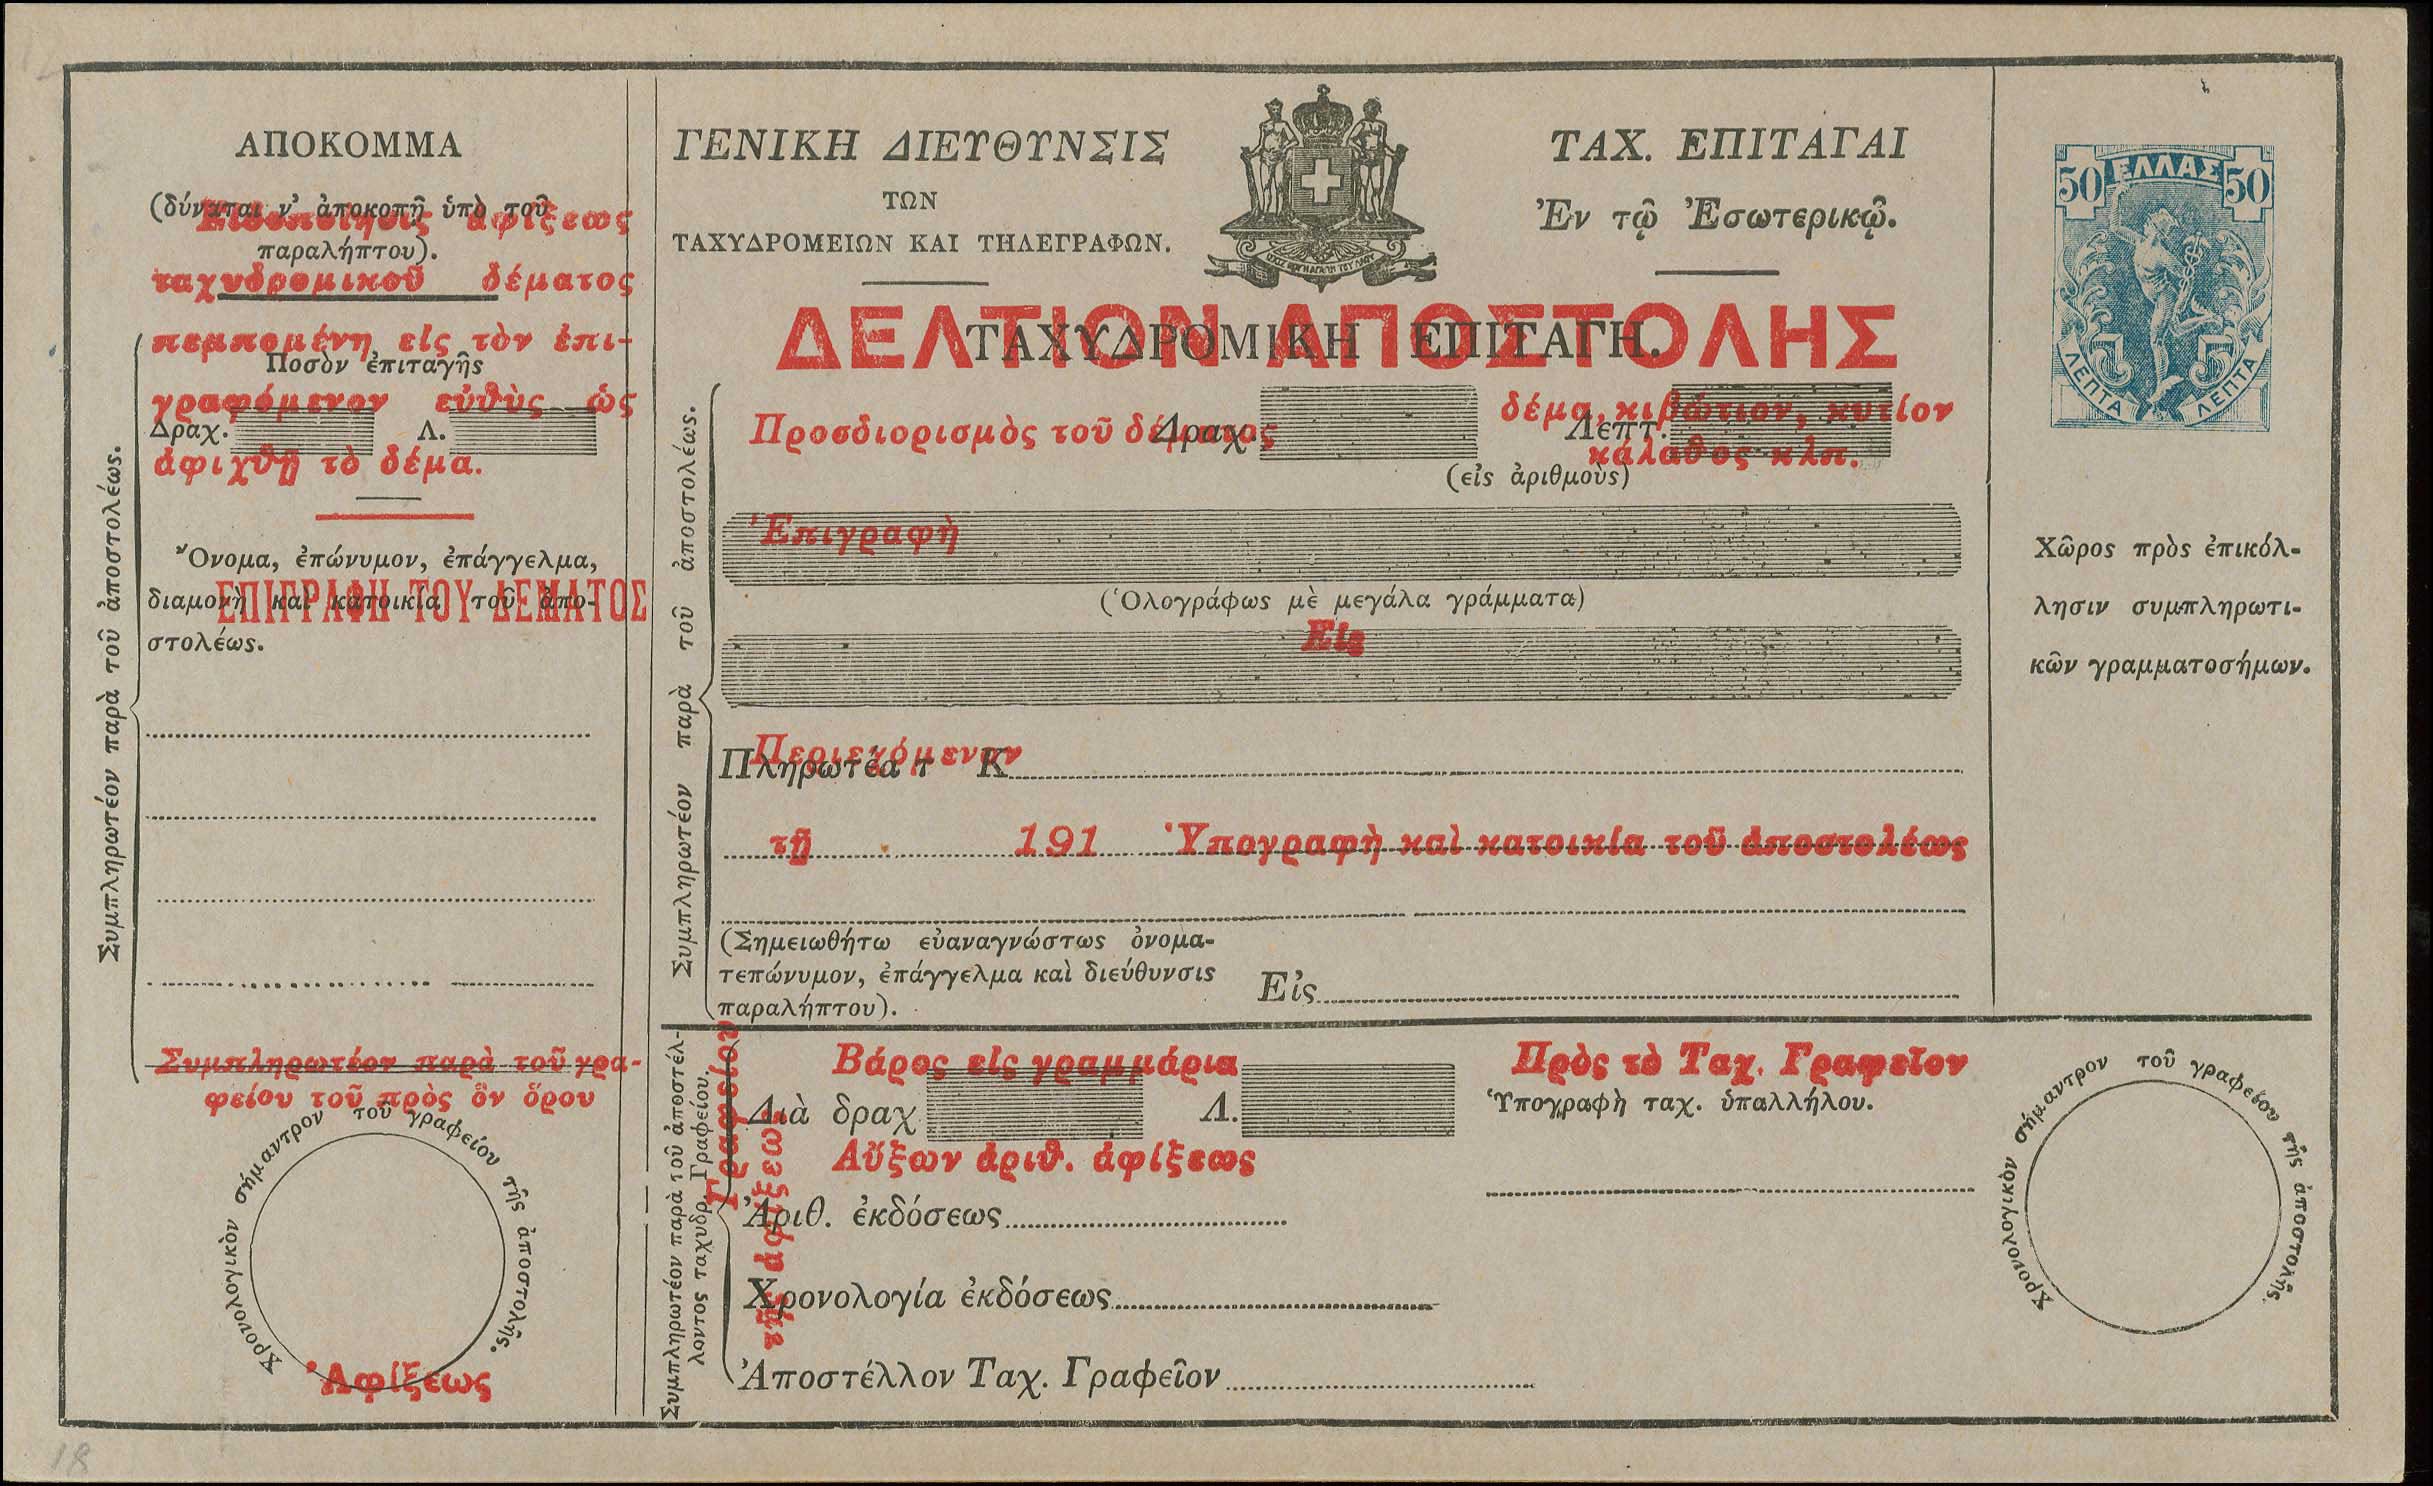 ΑΠΟΚΟΜΜΑ
(δύναται ν' ἀποκοπῇ ὑπὸ τοῦ
Εἰδοποίησις ἀφίξεως
παραλήπτου).
ταχυδρομικοῦ δέματος
πεμπομένη εἰς τὸν ἐπι-
Ποσὸν ἐπιταγῆς
γραφόμενον εὐθὺς ὡς
Δραχ. Λ.
ἀφιχθῇ τὸ δέμα.
Ὄνομα, ἐπώνυμον, ἐπάγγελμα,
ΕΠΙΓΡΑΦΗ ΤΟΥ ΔΕΜΑΤΟΣ
διαμονὴ καὶ κατοικία τοῦ ἀπο-
στολέως.
Συμπληρωτέον παρὰ τοῦ ἀποστολέως.
Συμπληρωτέον παρὰ τοῦ γρα-
φείου τοῦ πρὸς ὃν ὅρου
Χρονολογικὸν σήμαντρον τοῦ γραφείου τῆς ἀποστολῆς.
Ἀφίξεως
ΓΕΝΙΚΗ ΔΙΕΥΘΥΝΣΙΣ
ΤΩΝ
ΤΑΧΥΔΡΟΜΕΙΩΝ ΚΑΙ ΤΗΛΕΓΡΑΦΩΝ.
ΤΑΧ. ΕΠΙΤΑΓΑΙ
Ἐν τῷ Ἐσωτερικῷ.
ΔΕΛΤΙΟΝ ΑΠΟΣΤΟΛΗΣ
ΤΑΧΥΔΡΟΜΙΚΗ ΕΠΙΤΑΓΗ.
Προσδιορισμὸς τοῦ δέματος
δέμα, κιβώτιον, κυτίον
Δραχ. Λεπτ.
κάλαθος κλπ.
(εἰς ἀριθμοὺς)
Ἐπιγραφὴ
(Ὁλογράφως μὲ μεγάλα γράμματα)
Εἰς
Περιεχόμενον
Πληρωτέα τ Κ
τῇ 191 Ὑπογραφὴ καὶ κατοικία τοῦ ἀποστολέως
(Σημειωθήτω εὐαναγνώστως ὀνομα-
τεπώνυμον, ἐπάγγελμα καὶ διεύθυνσις
παραλήπτου).
Εἰς
Συμπληρωτέον παρὰ τοῦ ἀποστολέως.
Συμπληρωτέον παρὰ τοῦ ἀποστέλ-
λοντος ταχυδρ. Γραφείου.
Γραφείου
τῆς ἀφίξεως
Βάρος εἰς γραμμάρια
Διὰ δραχ Λ.
Αὔξων ἀριθ. ἀφίξεως
Ἀριθ. ἐκδόσεως
Χρονολογία ἐκδόσεως
Ἀποστέλλον Ταχ. Γραφεῖον
Πρὸς τὸ Ταχ. Γραφεῖον
Ὑπογραφὴ ταχ. ὑπαλλήλου.
50 ΕΛΛΑΣ 50
ΛΕΠΤΑ ΛΕΠΤΑ
Χῶρος πρὸς ἐπικόλ-
λησιν συμπληρωτι-
κῶν γραμματοσήμων.
Χρονολογικὸν σήμαντρον τοῦ γραφείου τῆς ἀποστολῆς.
18